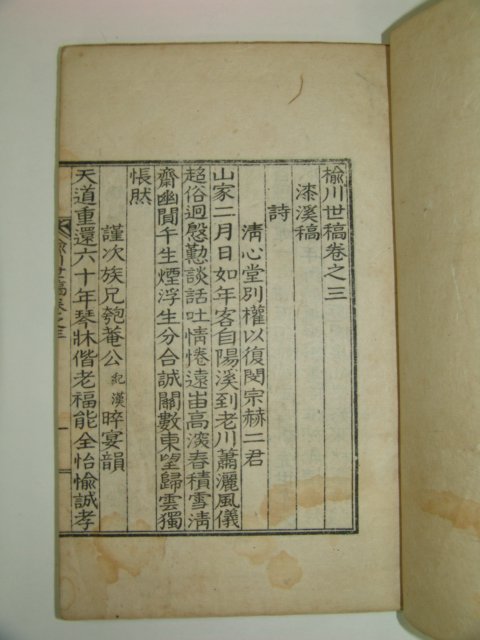 楡川世稿卷之三
漆溪稿
詩
清心堂別權以復閔宗赫二君
山家二月日如年客自陽溪到老川蕭灑風儀
超俗迥慇懃談話吐情惓遠峀高淡春積雪淸
齋幽閴千生煙浮生分合誠關數東望歸雲獨
悵然
謹次族兄匏菴公紀漢晬宴韻
天道重還六十年琴牀偕老福能全怡愉誠孝
楡川世稿卷之三 一